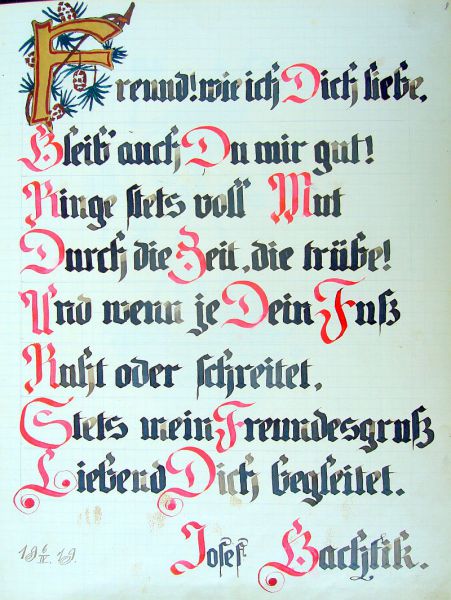 Freund! wie ich Dich liebe,
Bleib' auch Du mir gut!
Ringe stets voll Mut
Durch die Zeit, die trübe!
Und wenn je Dein Fuß
Rast oder schreitet,
Stets mein Freundesgruß
Liebend Dich begleitet.
19 6/IV. 19. Josef Bachlik.